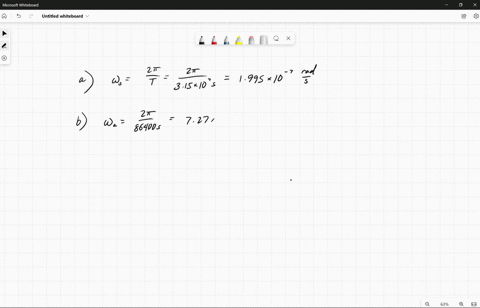 Microsoft Whiteboard
Untitled whiteboard
a) ω₀ = 2π/T = 2π/3.15×10⁷s = 1.995×10⁻⁷ rad/s
b) ωₐ = 2π/86400s = 7.27
63%